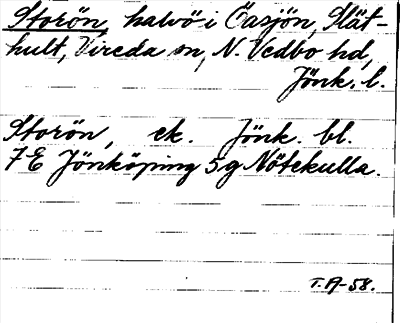 Storön, halvö i Öasjön, Slät-
hult, Vireda sn, N. Vedbo hd,
Jönk. l.
Storön, ek. Jönk. bl.
7E Jönköping 5g Nötekulla.
T.A-58.